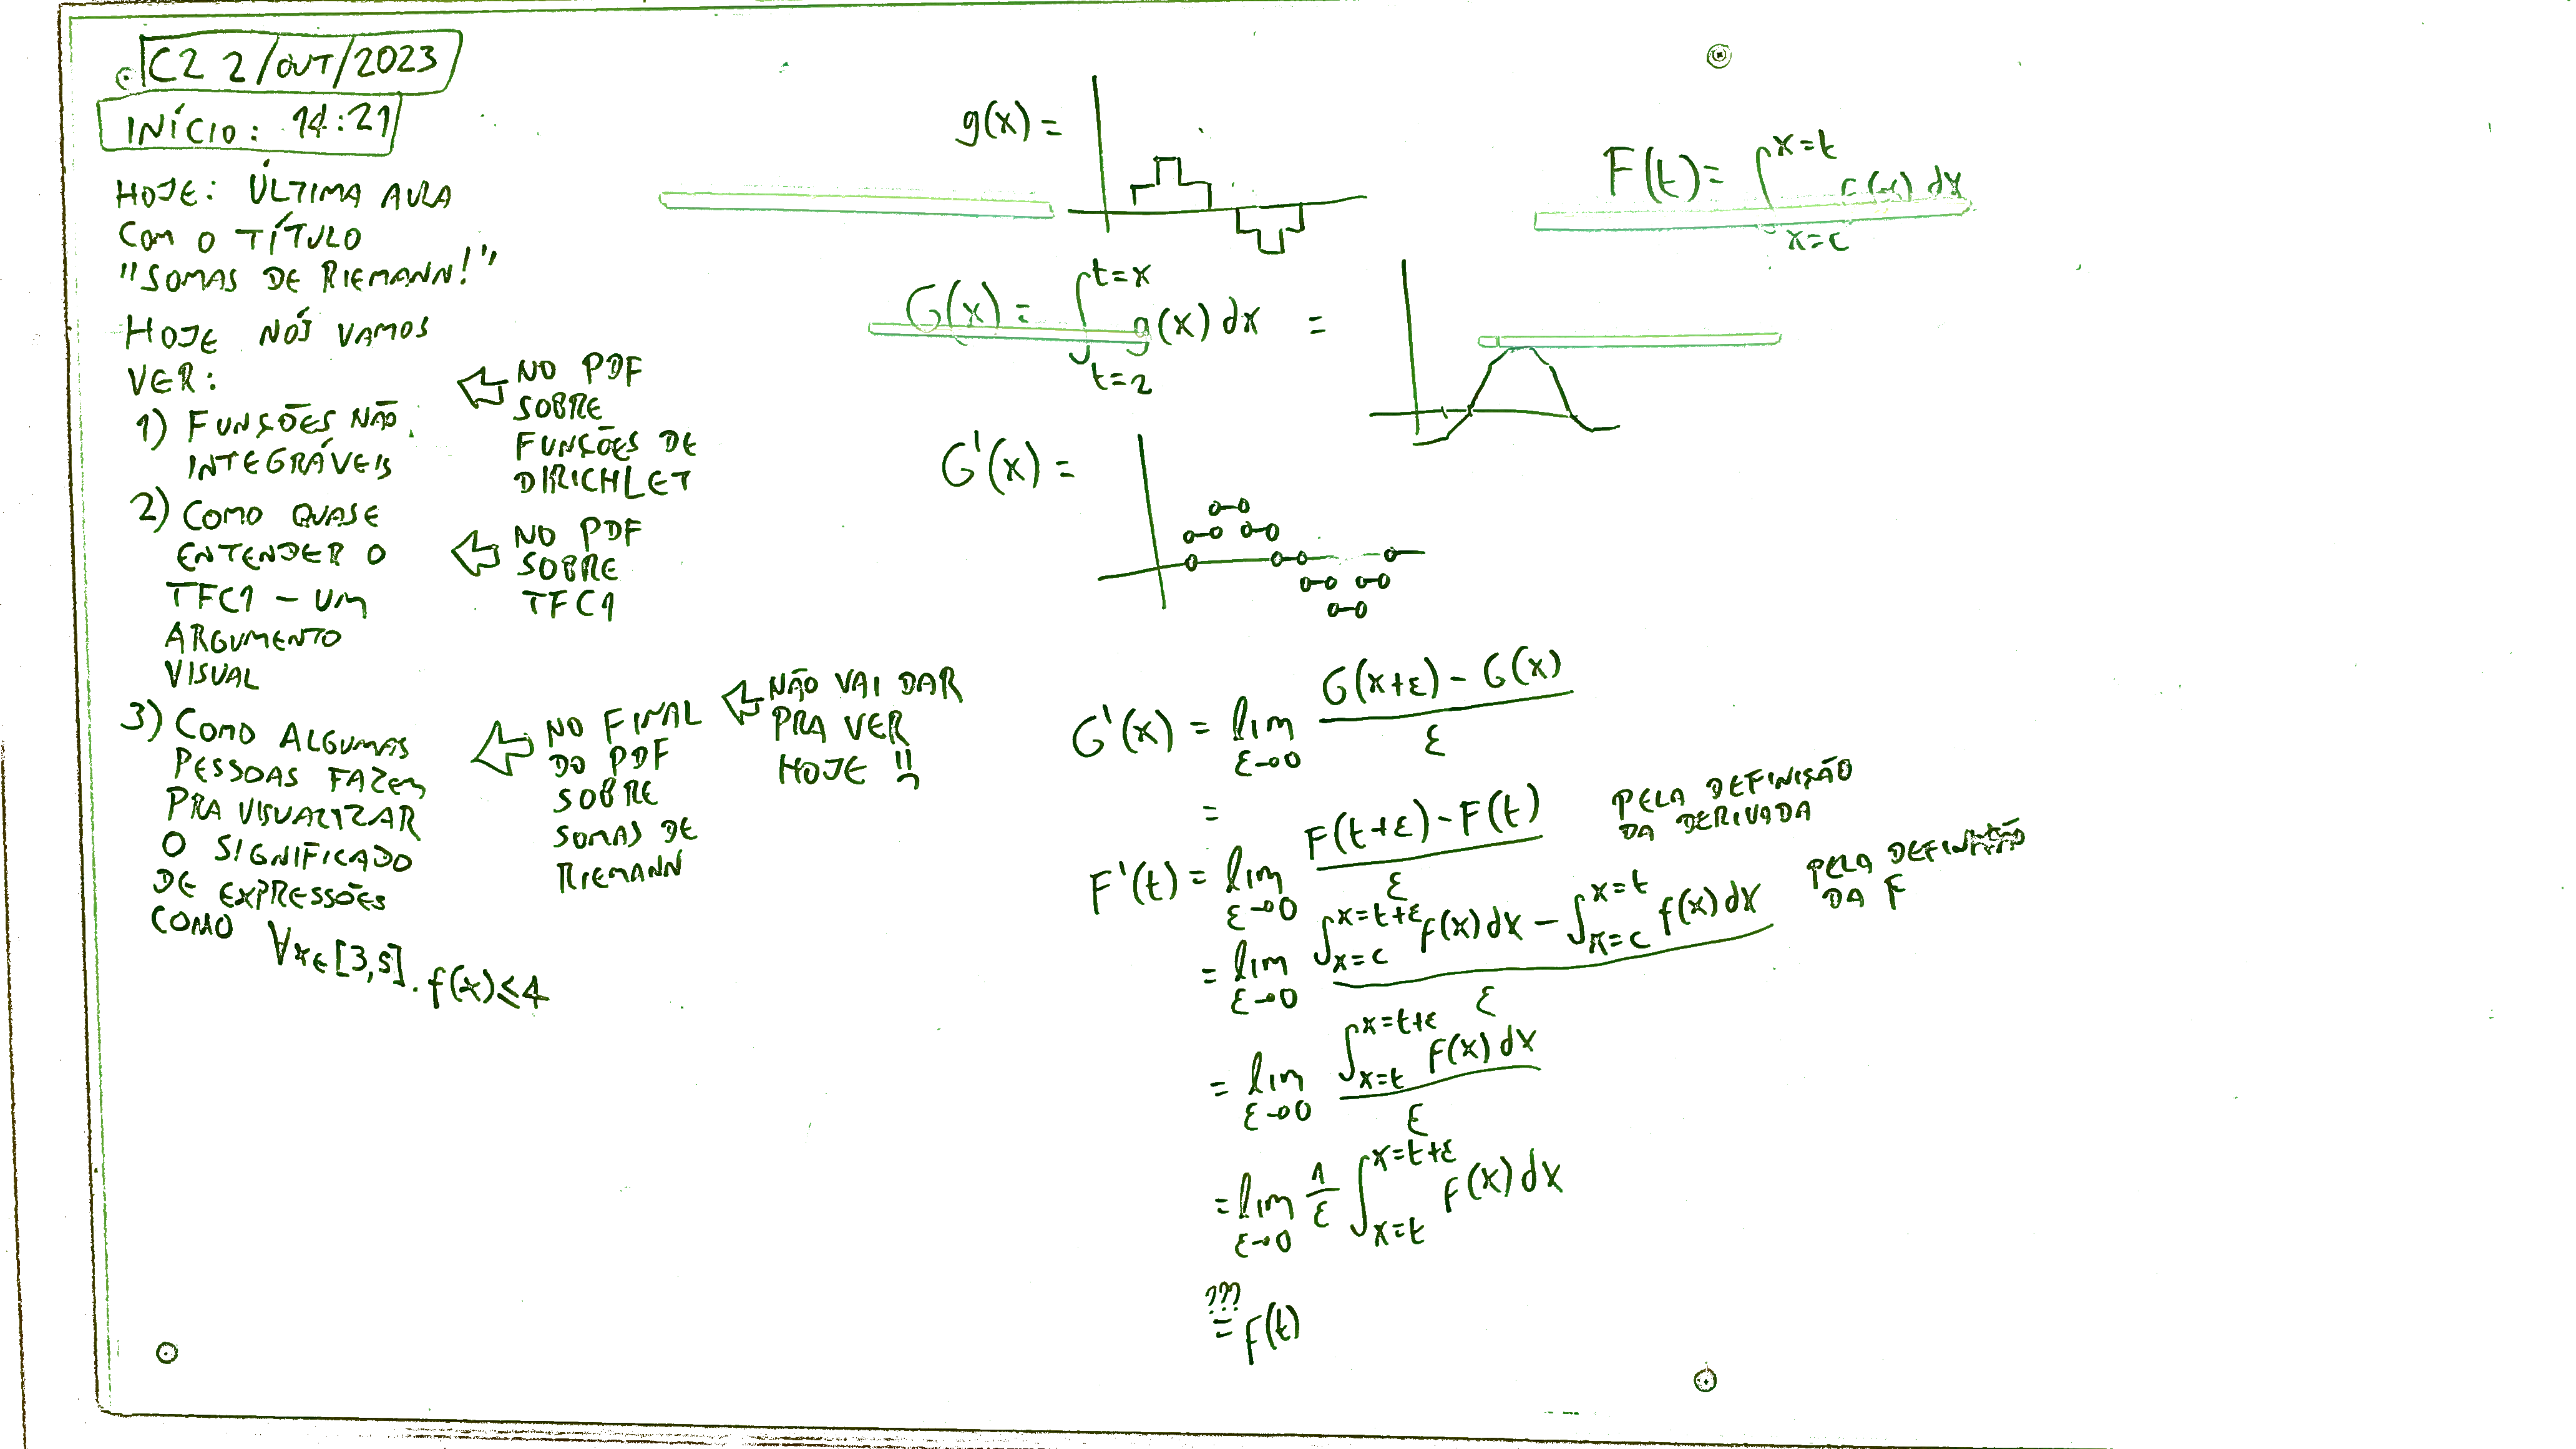 C2 2/OUT/2023
INÍCIO: 14:21
HOJE: ÚLTIMA AULA
COM O TÍTULO
"SOMAS DE RIEMANN!"
HOJE NÓS VAMOS
VER:
1) FUNÇÕES NÃO
INTEGRÁVEIS
⇐ NO PDF
SOBRE
FUNÇÕES DE
DIRICHLET
2) COMO QUASE
ENTENDER O
TFC1 – UM
ARGUMENTO
VISUAL
⇐ NO PDF
SOBRE
TFC1
3) COMO ALGUMAS
PESSOAS FAZEM
PRA VISUALIZAR
O SIGNIFICADO
DE EXPRESSÕES
COMO ∀x∈[3,5]. f(x)≤4
⇐ NO FINAL
DO PDF
SOBRE
SOMAS DE
RIEMANN
⇐ NÃO VAI DAR
PRA VER
HOJE
g(x) =
F(t) = ∫_{x=c}^{x=t} f(x) dx
G(x) = ∫_{t=2}^{t=x} g(x) dx =
G'(x) =
G'(x) = lim_{ε→0} (G(x+ε) - G(x))/ε
=
F'(t) = lim_{ε→0} (F(t+ε) - F(t))/ε PELA DEFINIÇÃO
DA DERIVADA
= lim_{ε→0} (∫_{x=c}^{x=t+ε} f(x) dx - ∫_{x=c}^{x=t} f(x) dx)/ε PELA DEFINIÇÃO
DA F
= lim_{ε→0} (∫_{x=t}^{x=t+ε} f(x) dx)/ε
= lim_{ε→0} 1/ε ∫_{x=t}^{x=t+ε} f(x) dx
???
= f(t)